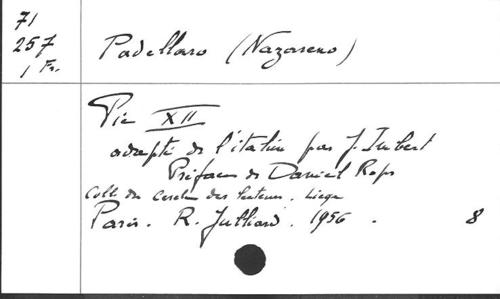 71
257
1 Fr.
Padellaro (Nazareno)
Pie XII
adapté de l'italien par J. Imbert
Préface de Daniel Rops
Coll. du Cercle des lecteurs. Liège
Paris. R. Julliard. 1956. 8